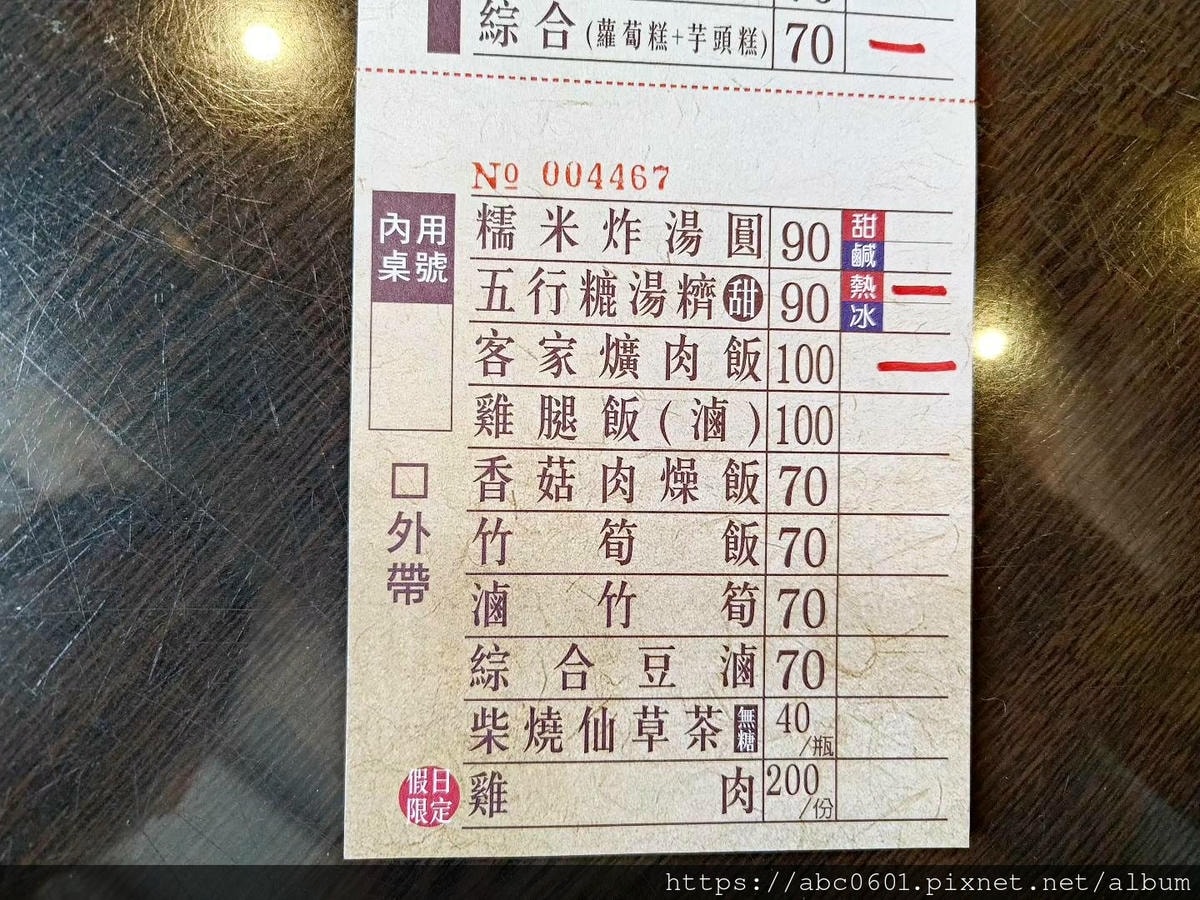 綜合(蘿蔔糕+芋頭糕) 70 一
№ 004467
內用桌號
糯米炸湯圓 90 甜 鹹
五行糖湯糍 甜 90 熱 冰 一
客家爌肉飯 100 一
雞腿飯(滷) 100
香菇肉燥飯 70
竹筍飯 70
滷竹筍 70
綜合豆滷 70
柴燒仙草茶 無糖 40/瓶
假日限定 雞肉 200/份
□外帶
https://abc0601.pixnet.net/album